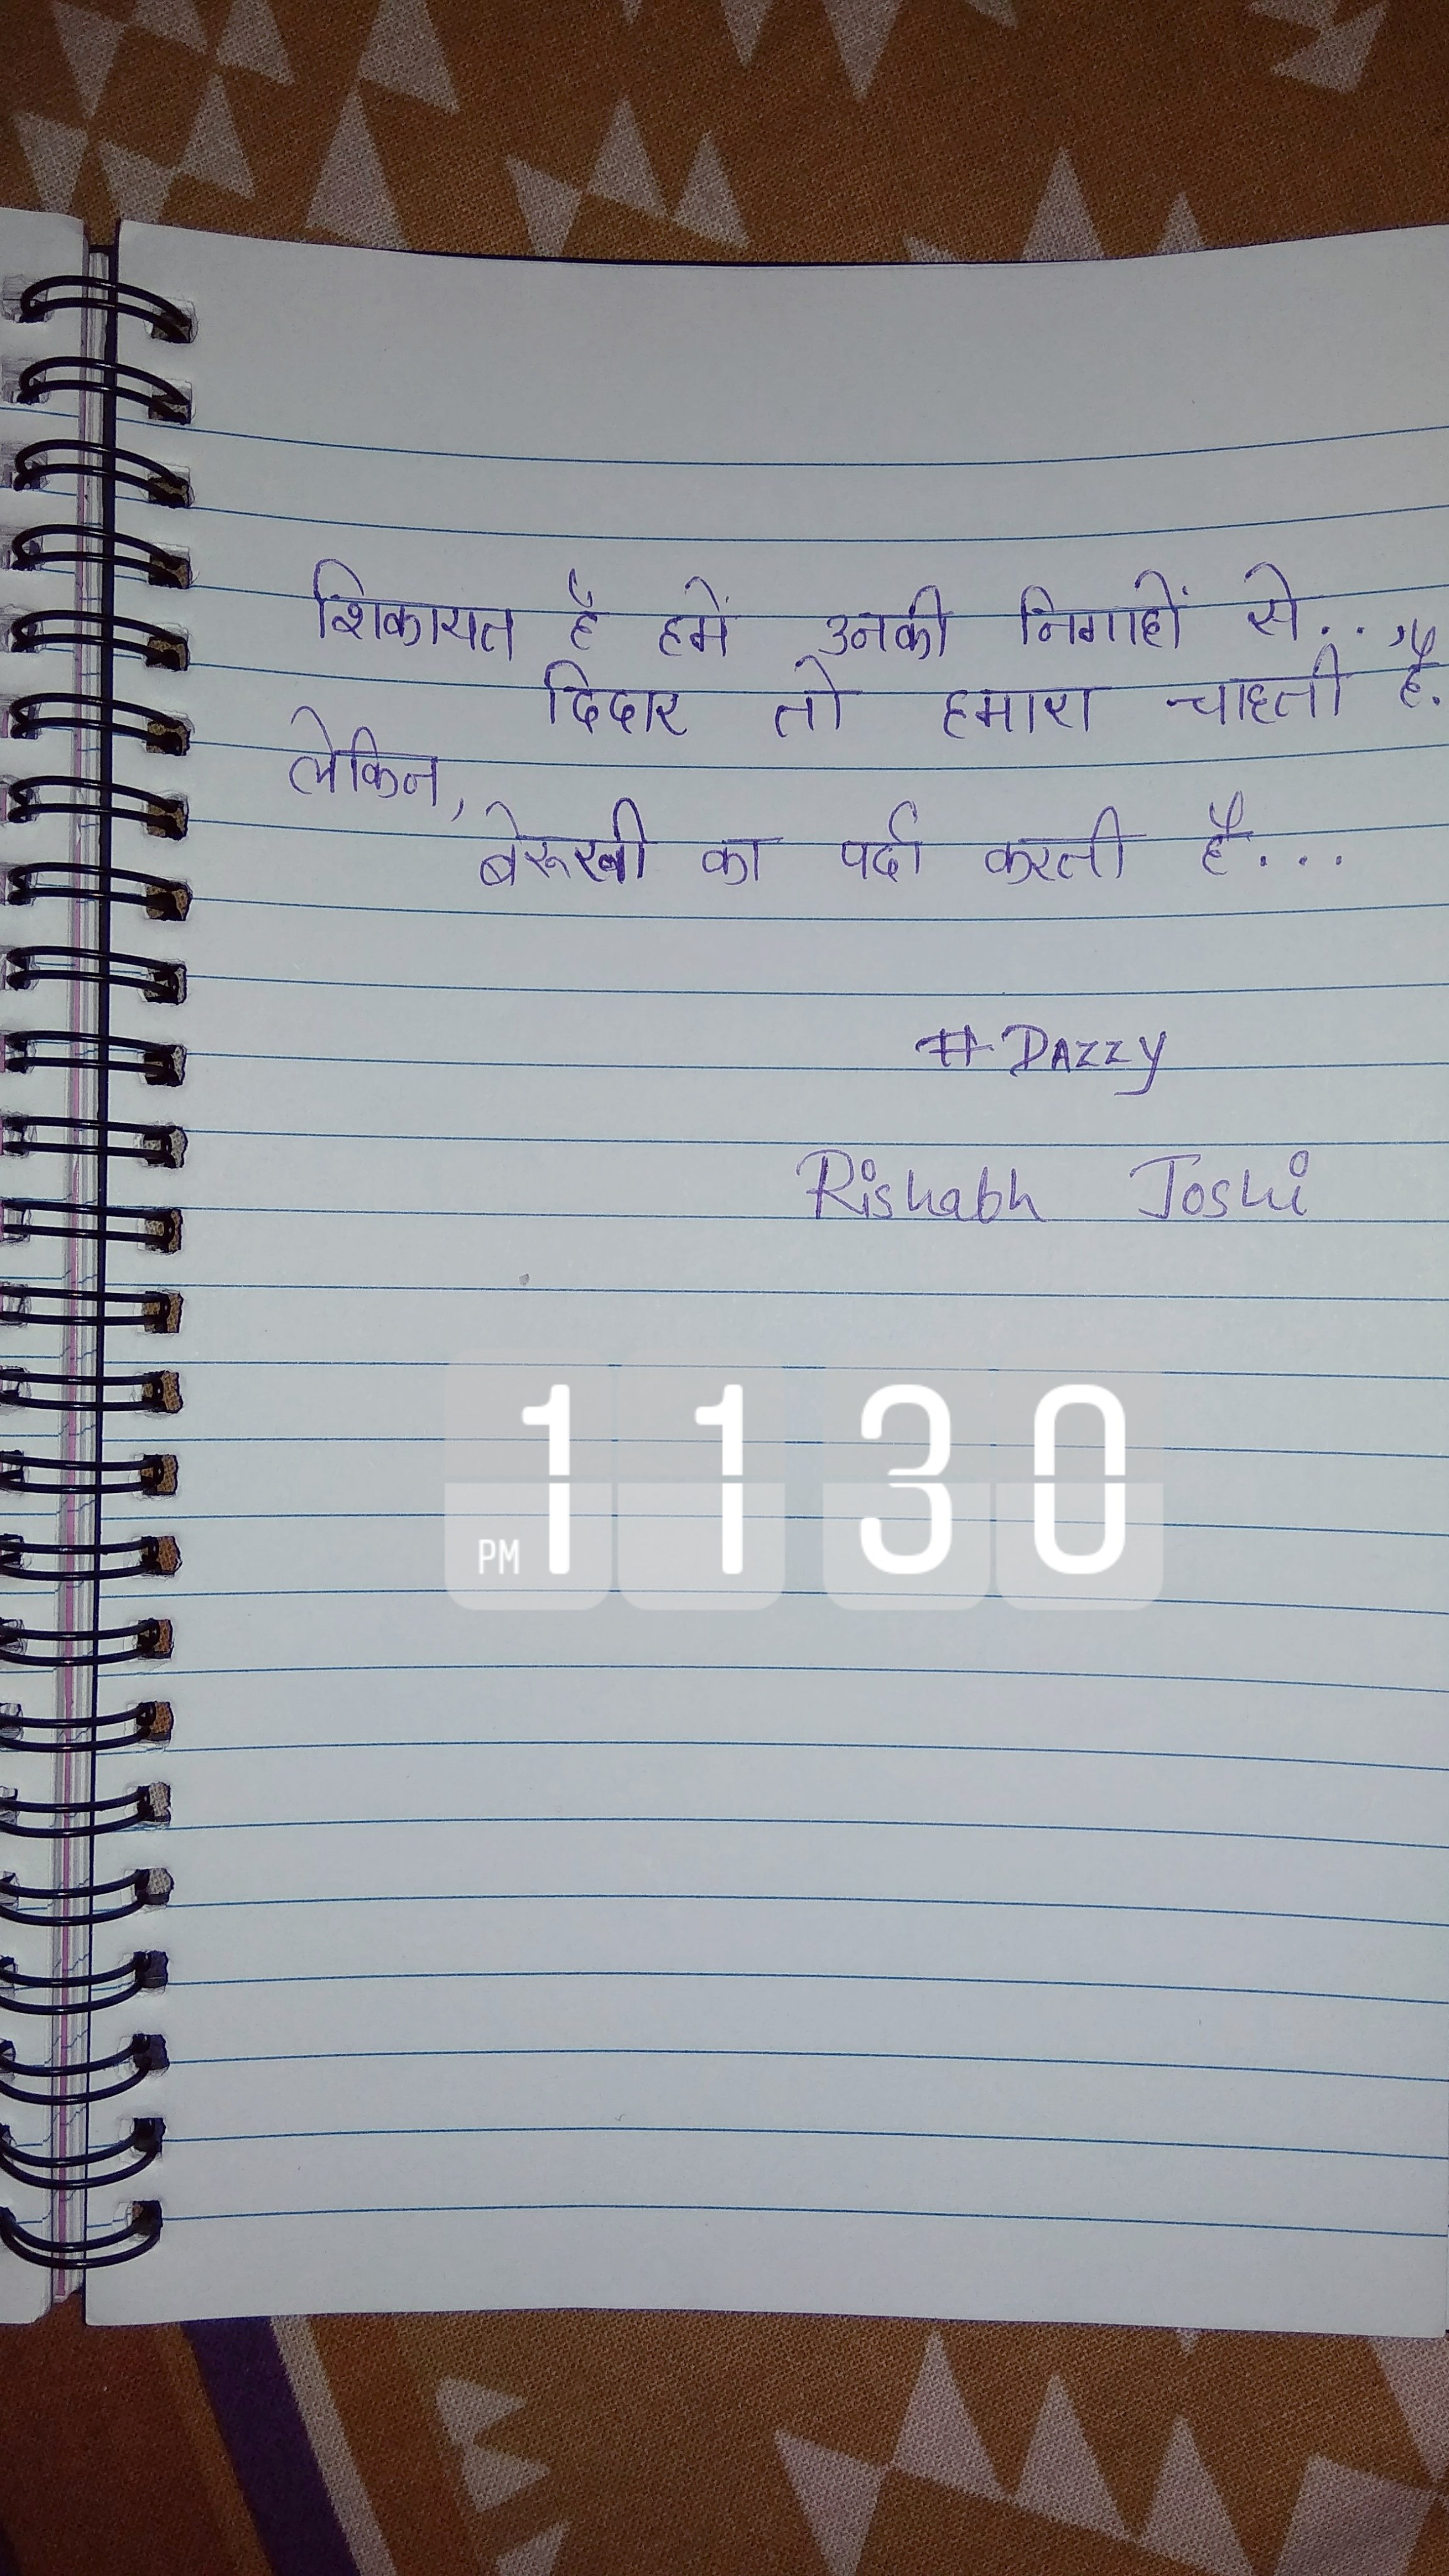 शिकायत है हमें उनकी निगाहों से..,,
दिदार तो हमारा चाहती है.
लेकिन,
बेरूखी का पर्दा करती है...
#DAZZY
Rishabh Joshi
PM 11 30